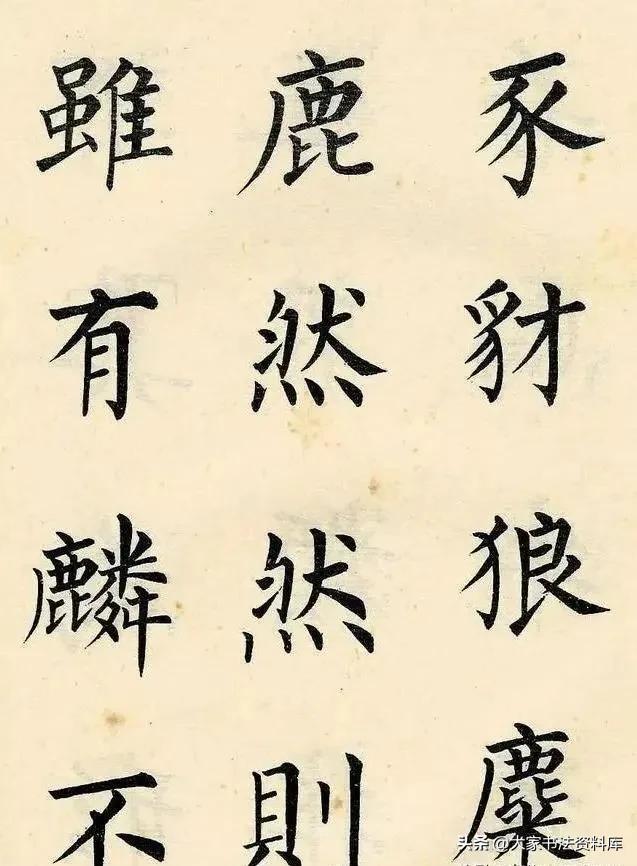 豕豺狼麋
鹿然然則
雖有麟不
头条 @大家书法资料库